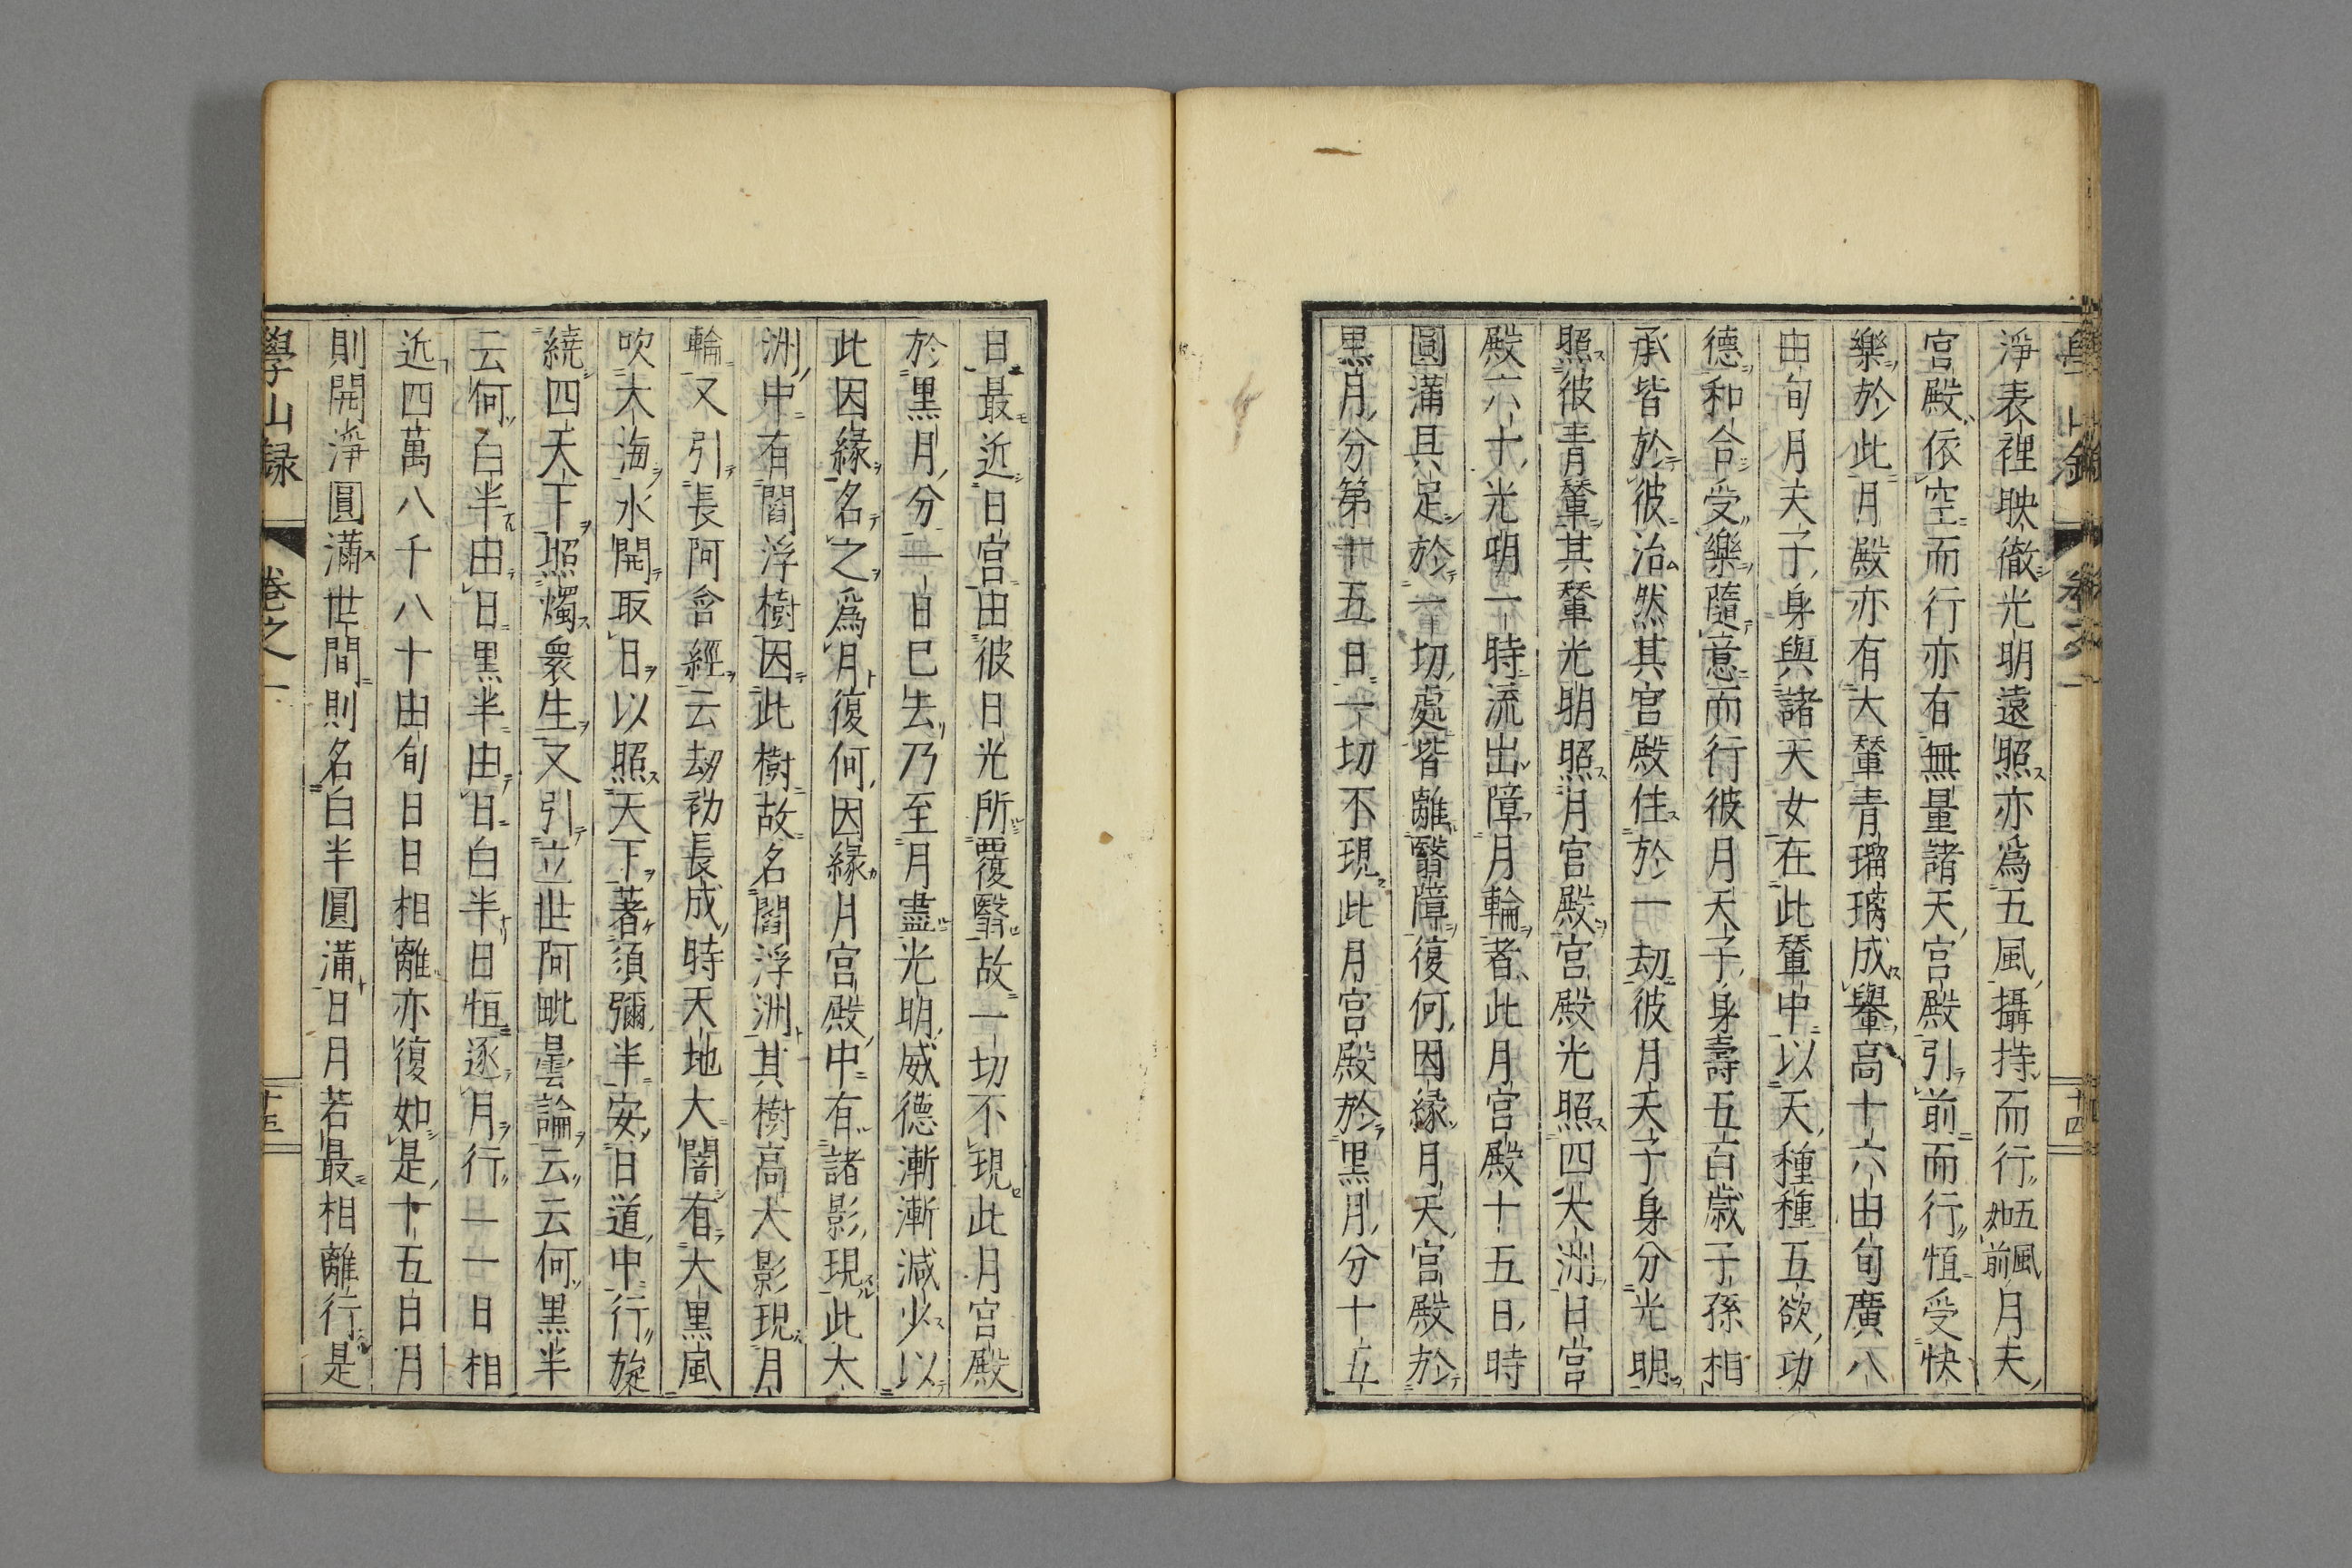 淨表裡映徹光明遠照亦爲五風攝持而行五風如前月天
宮殿依空而行亦有無量諸天宮殿引前而行恒受快
樂於此月殿亦有大輦青瑠璃成轝高十六由旬廣八
由旬月天子身與諸天女在此輦中以天種種五欲功
德和合受樂隨意而行彼月天子身壽五百歲子孫相
承皆於彼治然其宮殿住於一劫彼月天子身分光明
照彼青輦其輦光明照月宮殿宮殿光照四大洲日宮
殿六十光明一時流出障月輪者此月宮殿十五日時
圓滿具足於一切處皆離翳障復何因緣月天宮殿於
黒月分第十五日一切不現此月宮殿於黒月分十五
日最近日宮由彼日光所覆翳故一切不現此月宮殿
於黒月分一日巳去乃至月盡光明威德漸漸減少以
此因緣名之爲月復何因緣月宮殿中有諸影現此大
洲中有閻浮樹因此樹故名閻浮洲其樹高大影現月
輪又引長阿含經云劫初長成時天地大闇有大黒風
吹大海水開取日以照天下著須彌半安日道中行旋
繞四天下照燭衆生又引立世阿毗曇論云云何黒半
云何白半由日黒半由日白半日恒逐月行一一日相
近四萬八千八十由旬日日相離亦復如是十五日月
則開淨圓滿世間則名白半圓滿日月若最相離行是
學山録
卷之一
十五